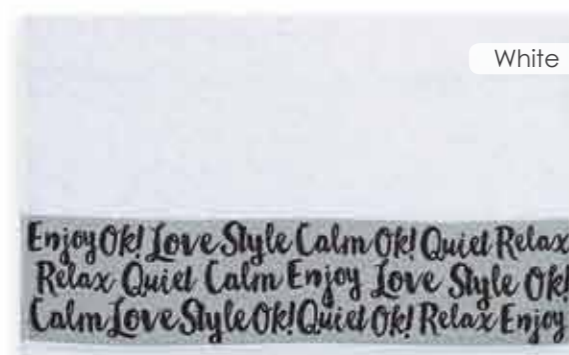 White
Enjoy Ok! Love Style Calm Ok! Quiet Relax
Relax Quiet Calm Enjoy Love Style Ok!
Calm Love Style Ok! Quiet Ok! Relax Enjoy